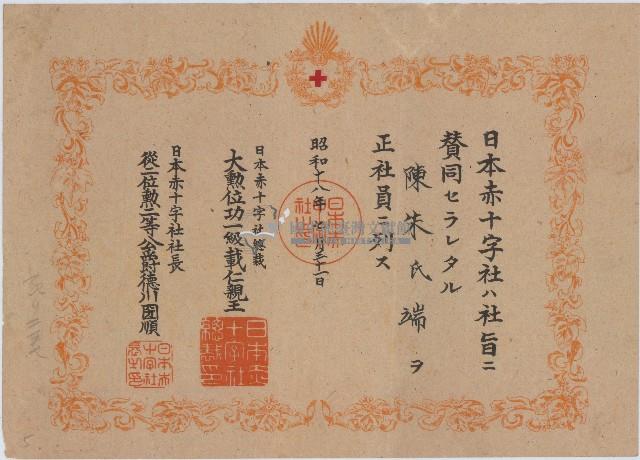 日本赤十字社ハ社旨ニ
賛同セラレタル
陳朱氏端ヲ
正社員ニ列ス
昭和十八年 月三十一日
日本赤十字社総裁
大勲位功一級載仁親王
日本赤十字社社長
從一位勲一等公爵徳川圀順
日本赤十字社総裁印
日本赤十字社長之印